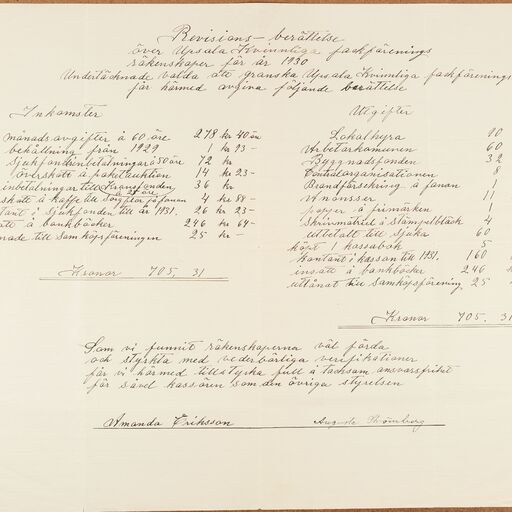 Revisions-berättelse
över Upsala Kvinnliga fackförenings
räkenskaper för år 1930
Undertecknade valda att granska Upsala Kvinnliga fackförenings
får härmed avgiva följande berättelse
Inkomster
månadsavgifter à 60 öre 278 kr 40 öre
behållning från 1929 1 kr 93 -
sjukfondeinbetalningar à 50 öre 72 kr
överskått å paketauktion 14 kr 23 -
inbetalningar till Kransfonden 36 kr
à 25 öre
skått å kaffe till 4 kr 88 -
tant i sjukfonden till år 1931. 26 kr 23 -
att å bankböcker 246 kr 64 -
nade till Samköpsföreningen 25 kr -
Kronor 705,31
Utgifter
Lokalhyra 90
Arbetarkomunen 60
Byggnadsfonden 32
8
Brandförsäkring å fanan 1
Anonsser 11
papper å frimärken 1
Skrivmatriel å stämpelbläck 4
utbetalt till sjuka 60
köpt 1 kassabok 5
kontant i kassan till 1931. 160
insatt å bankböcker 246
utlånat till Samköpsförening 25
Kronor 705.31
Som vi funnit räkenskaperna väl förda
och styrkta med vederbörliga verifikationer
får vi härmed tillstyrka full å tacksam ansvarsfrihet
för såväl kassören som den övriga styrelsen
Amanda Eriksson Augusta Strömberg